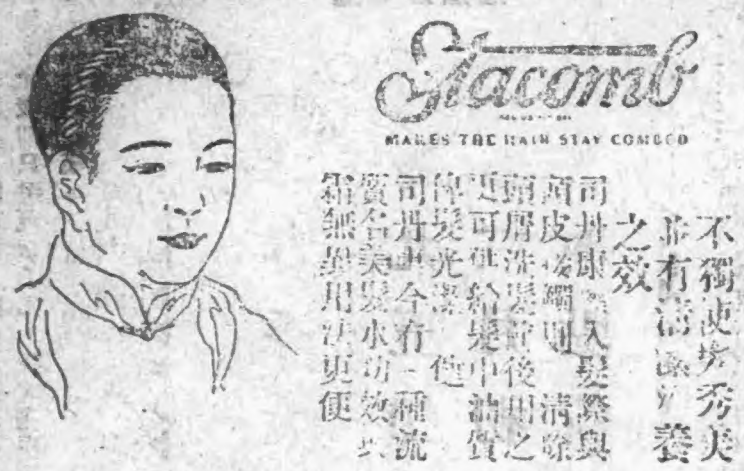 Stacomb
MAKES THE HAIR STAY COMBED
不獨使髮秀美
並有清潔滋養
之效
司丹康 入髮際與
頭皮接觸則 清除
頭屑洗髮前後用之
更可供給髮中油質
使髮光潔 他
司丹康今有一種流
質名美髮水功效與
霜無異用法更便